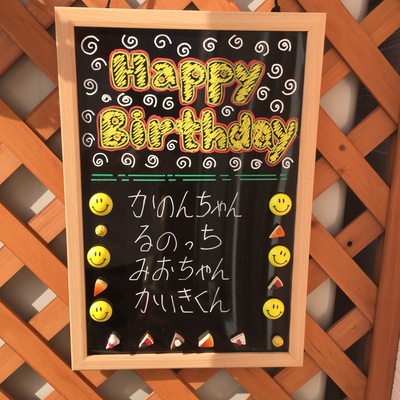 Happy
Birthday
かのんちゃん
るのっち
みおちゃん
かいきくん